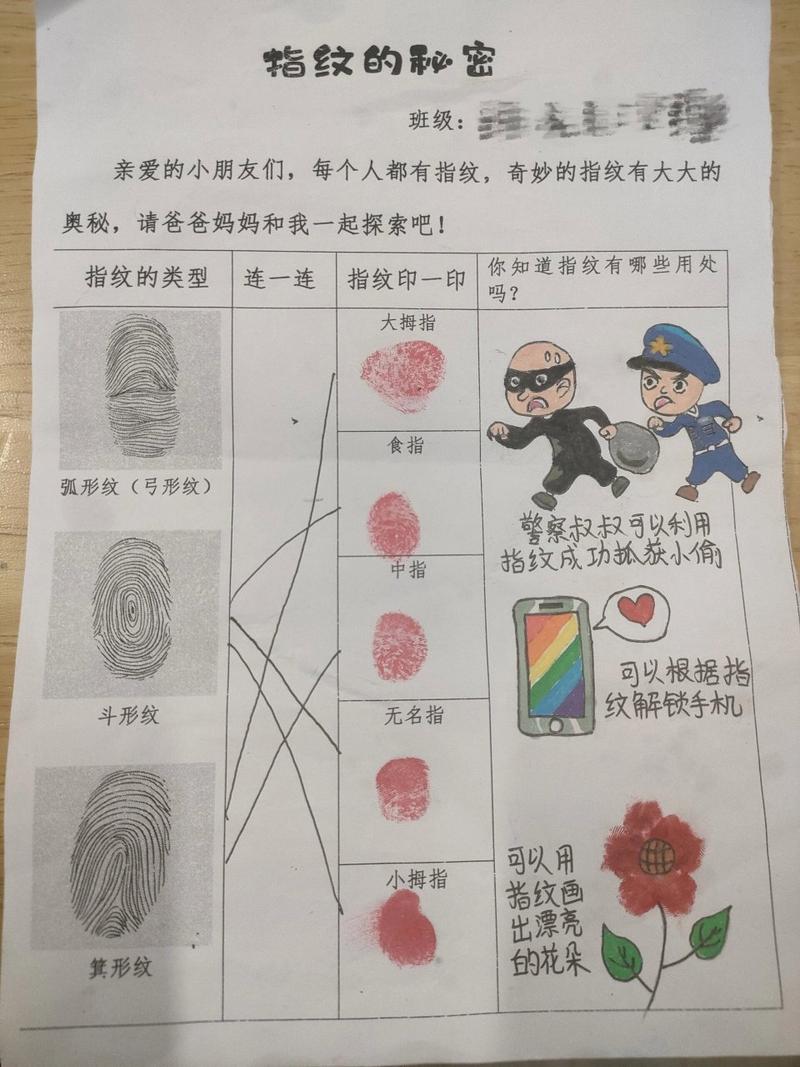 指纹的秘密
班级：
亲爱的小朋友们，每个人都有指纹，奇妙的指纹有大大的
奥秘，请爸爸妈妈和我一起探索吧！
指纹的类型
连一连
指纹印一印
你知道指纹有哪些用处
吗？
弧形纹（弓形纹）
斗形纹
箕形纹
大拇指
食指
中指
无名指
小拇指
警察叔叔可以利用
指纹成功抓获小偷
可以根据指
纹解锁手机
可以用
指纹画
出漂亮
的花朵